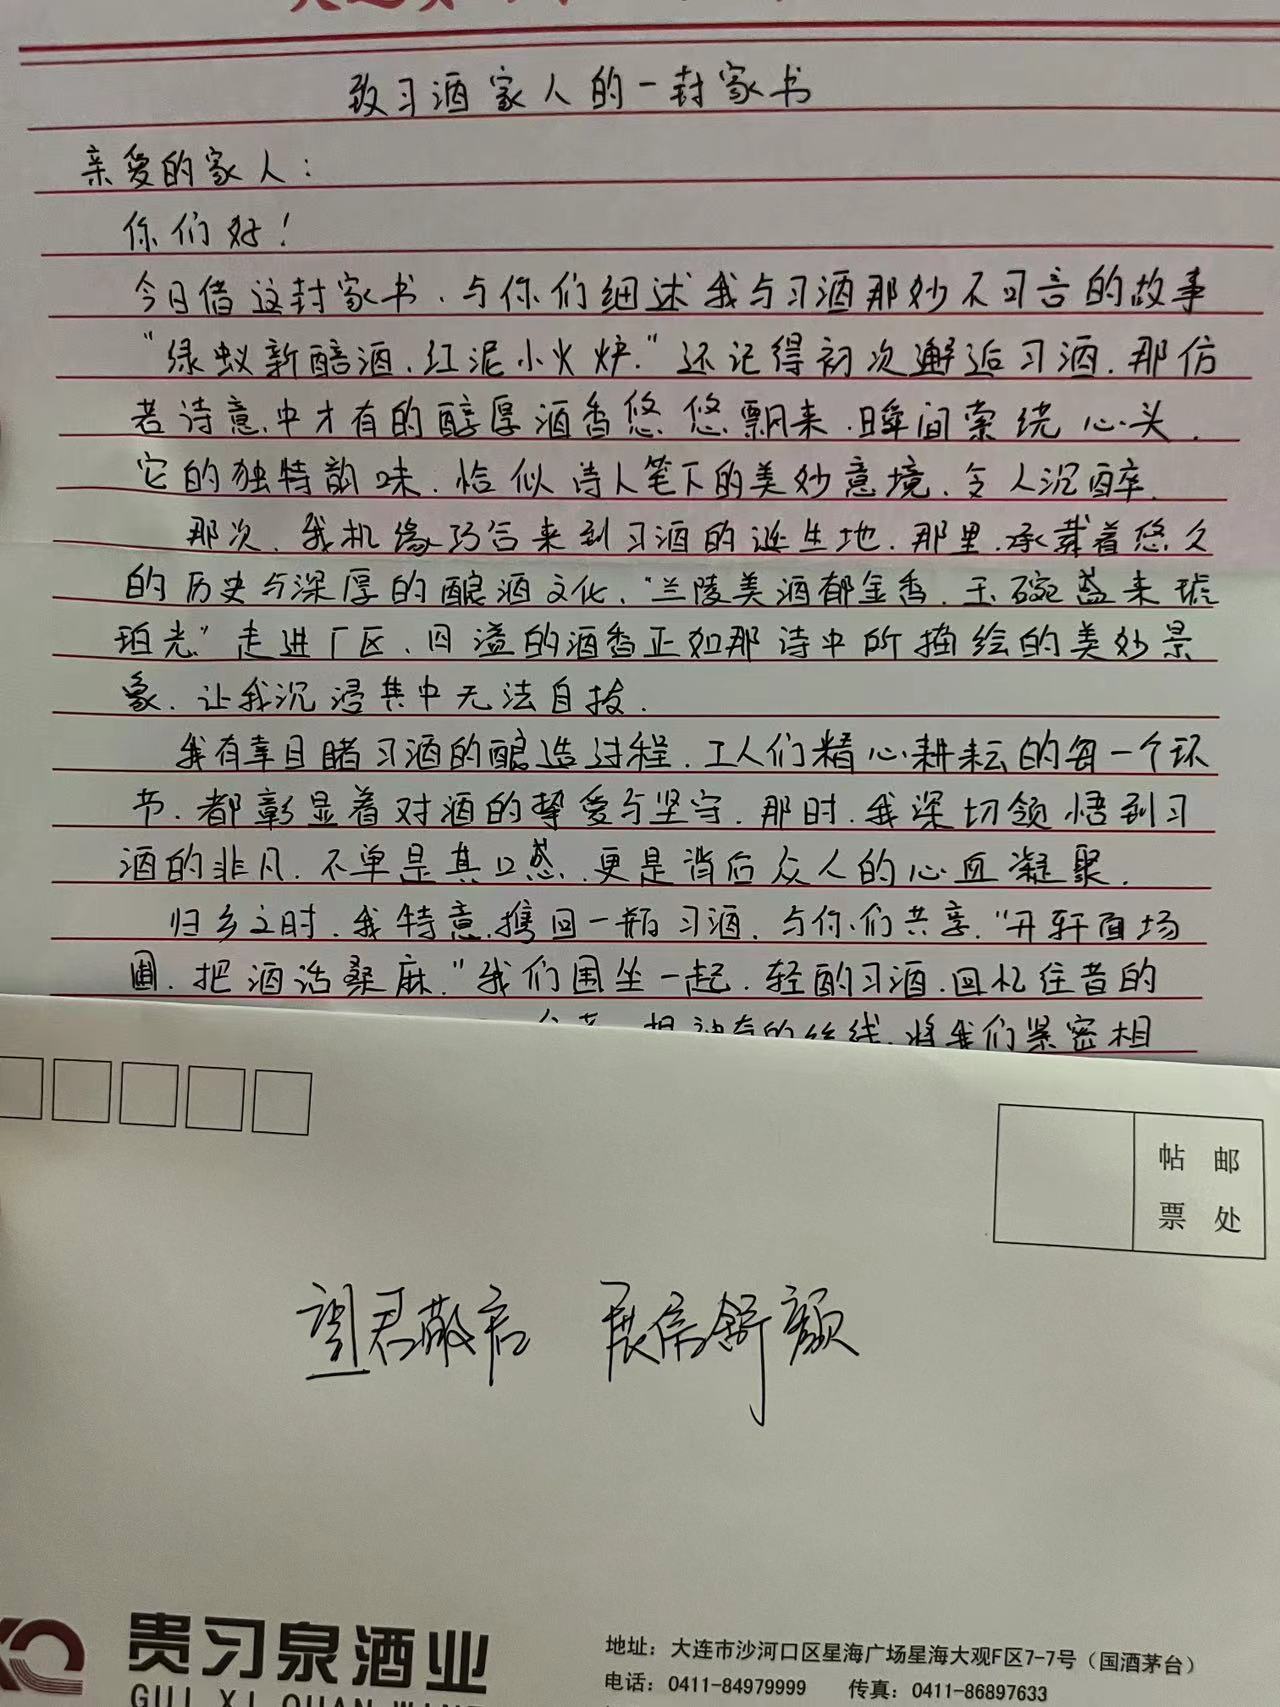 致习酒家人的一封家书
亲爱的家人：
你们好！
今日借这封家书，与你们细述我与习酒那妙不可言的故事
“绿蚁新醅酒，红泥小火炉.”还记得初次邂逅习酒，那仿
若诗意中才有的醇厚酒香悠悠飘来，瞬间萦绕心头，
它的独特韵味，恰似诗人笔下的美妙意境，令人沉醉.
那次，我机缘巧合来到习酒的诞生地，那里，承载着悠久
的历史与深厚的酿酒文化，“兰陵美酒郁金香，玉碗盛来琥
珀光”走进厂区，四溢的酒香正如那诗中所描绘的美妙景
象，让我沉浸其中无法自拔.
我有幸目睹习酒的酿造过程，工人们精心耕耘的每一个环
节，都彰显着对酒的挚爱与坚守，那时，我深切领悟到习
酒的非凡，不单是其口感，更是背后众人的心血凝聚.
归乡之时，我特意携回一瓶习酒，与你们共享，“开轩面场
圃，把酒话桑麻.”我们围坐一起，轻酌习酒，回忆往昔的
的丝线，将我们紧密相
帖邮
票处
望君敬启 展信舒颜
贵习泉酒业
GUI XI QUAN WINE
地址：大连市沙河口区星海广场星海大观F区7-7号（国酒茅台）
电话：0411-84979999 传真：0411-86897633